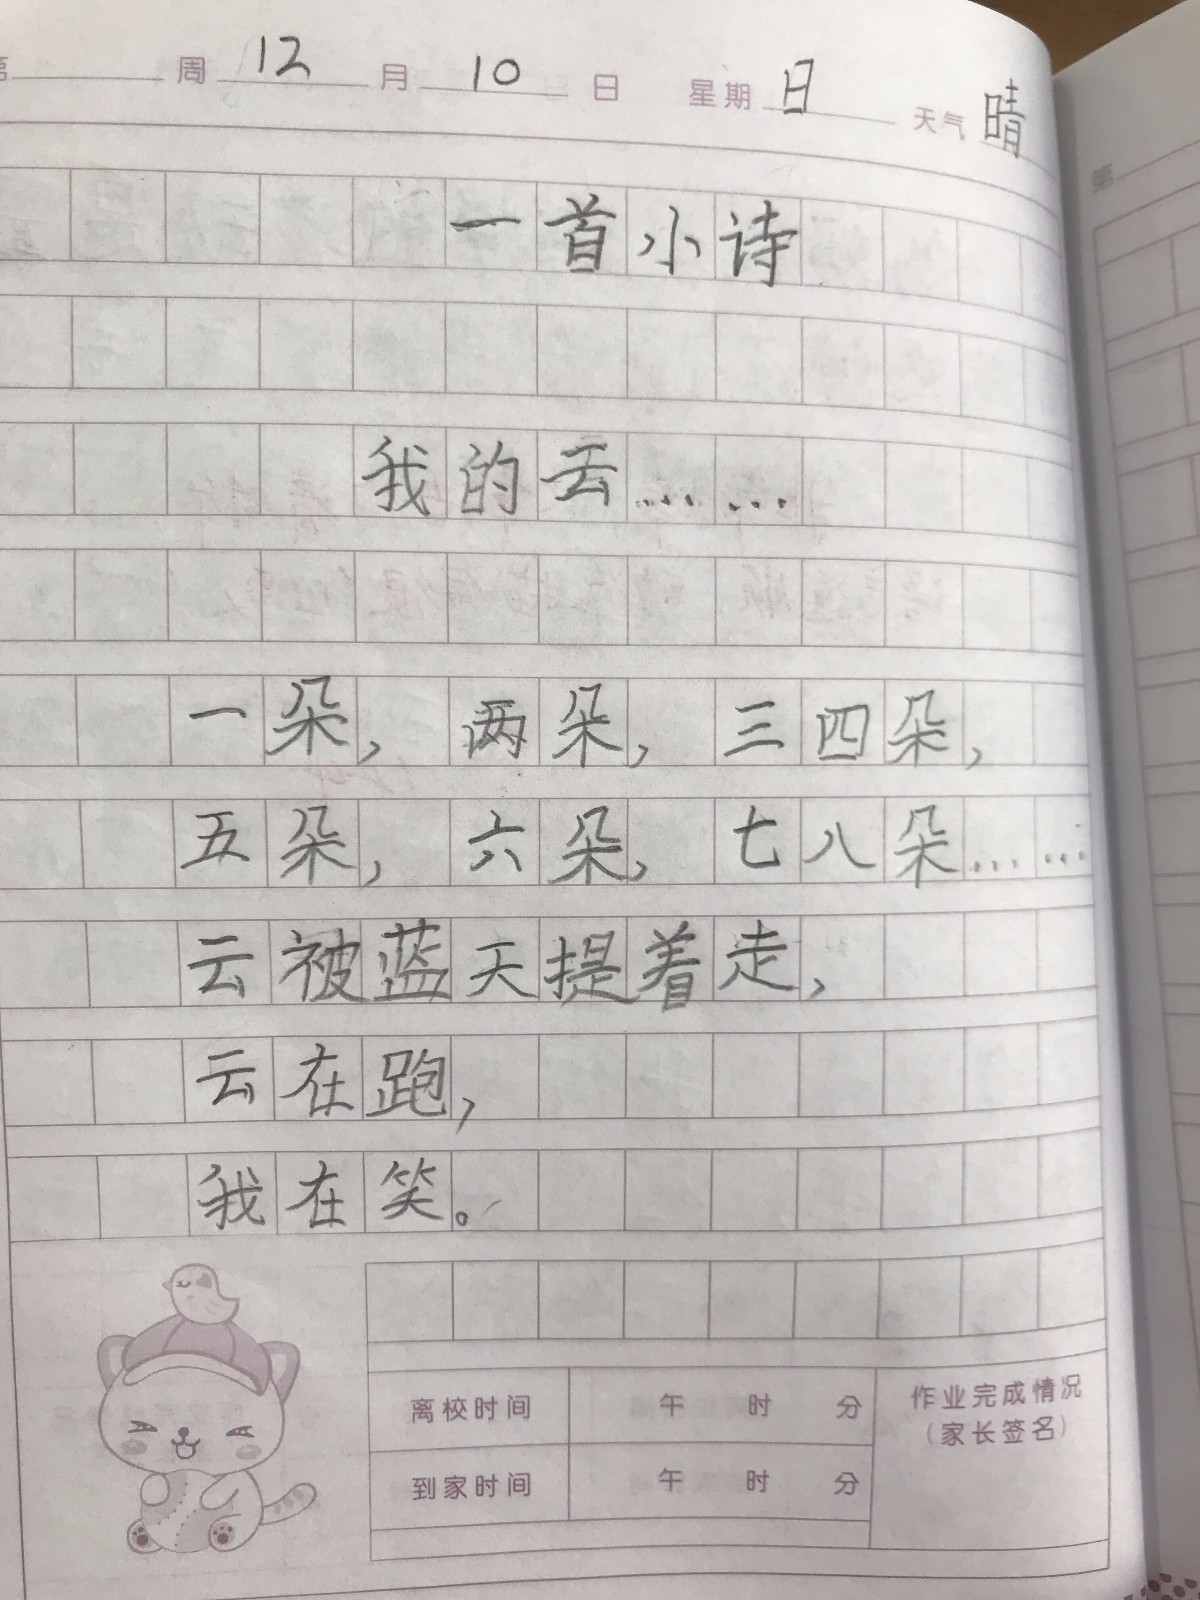 第 周 12 月 10 日 星期 日 天气 晴
一首小诗
我的云……
一朵，两朵，三四朵，
五朵，六朵，七八朵……
云被蓝天提着走，
云在跑，
我在笑。
离校时间 午 时 分
作业完成情况
（家长签名）
到家时间 午 时 分
第